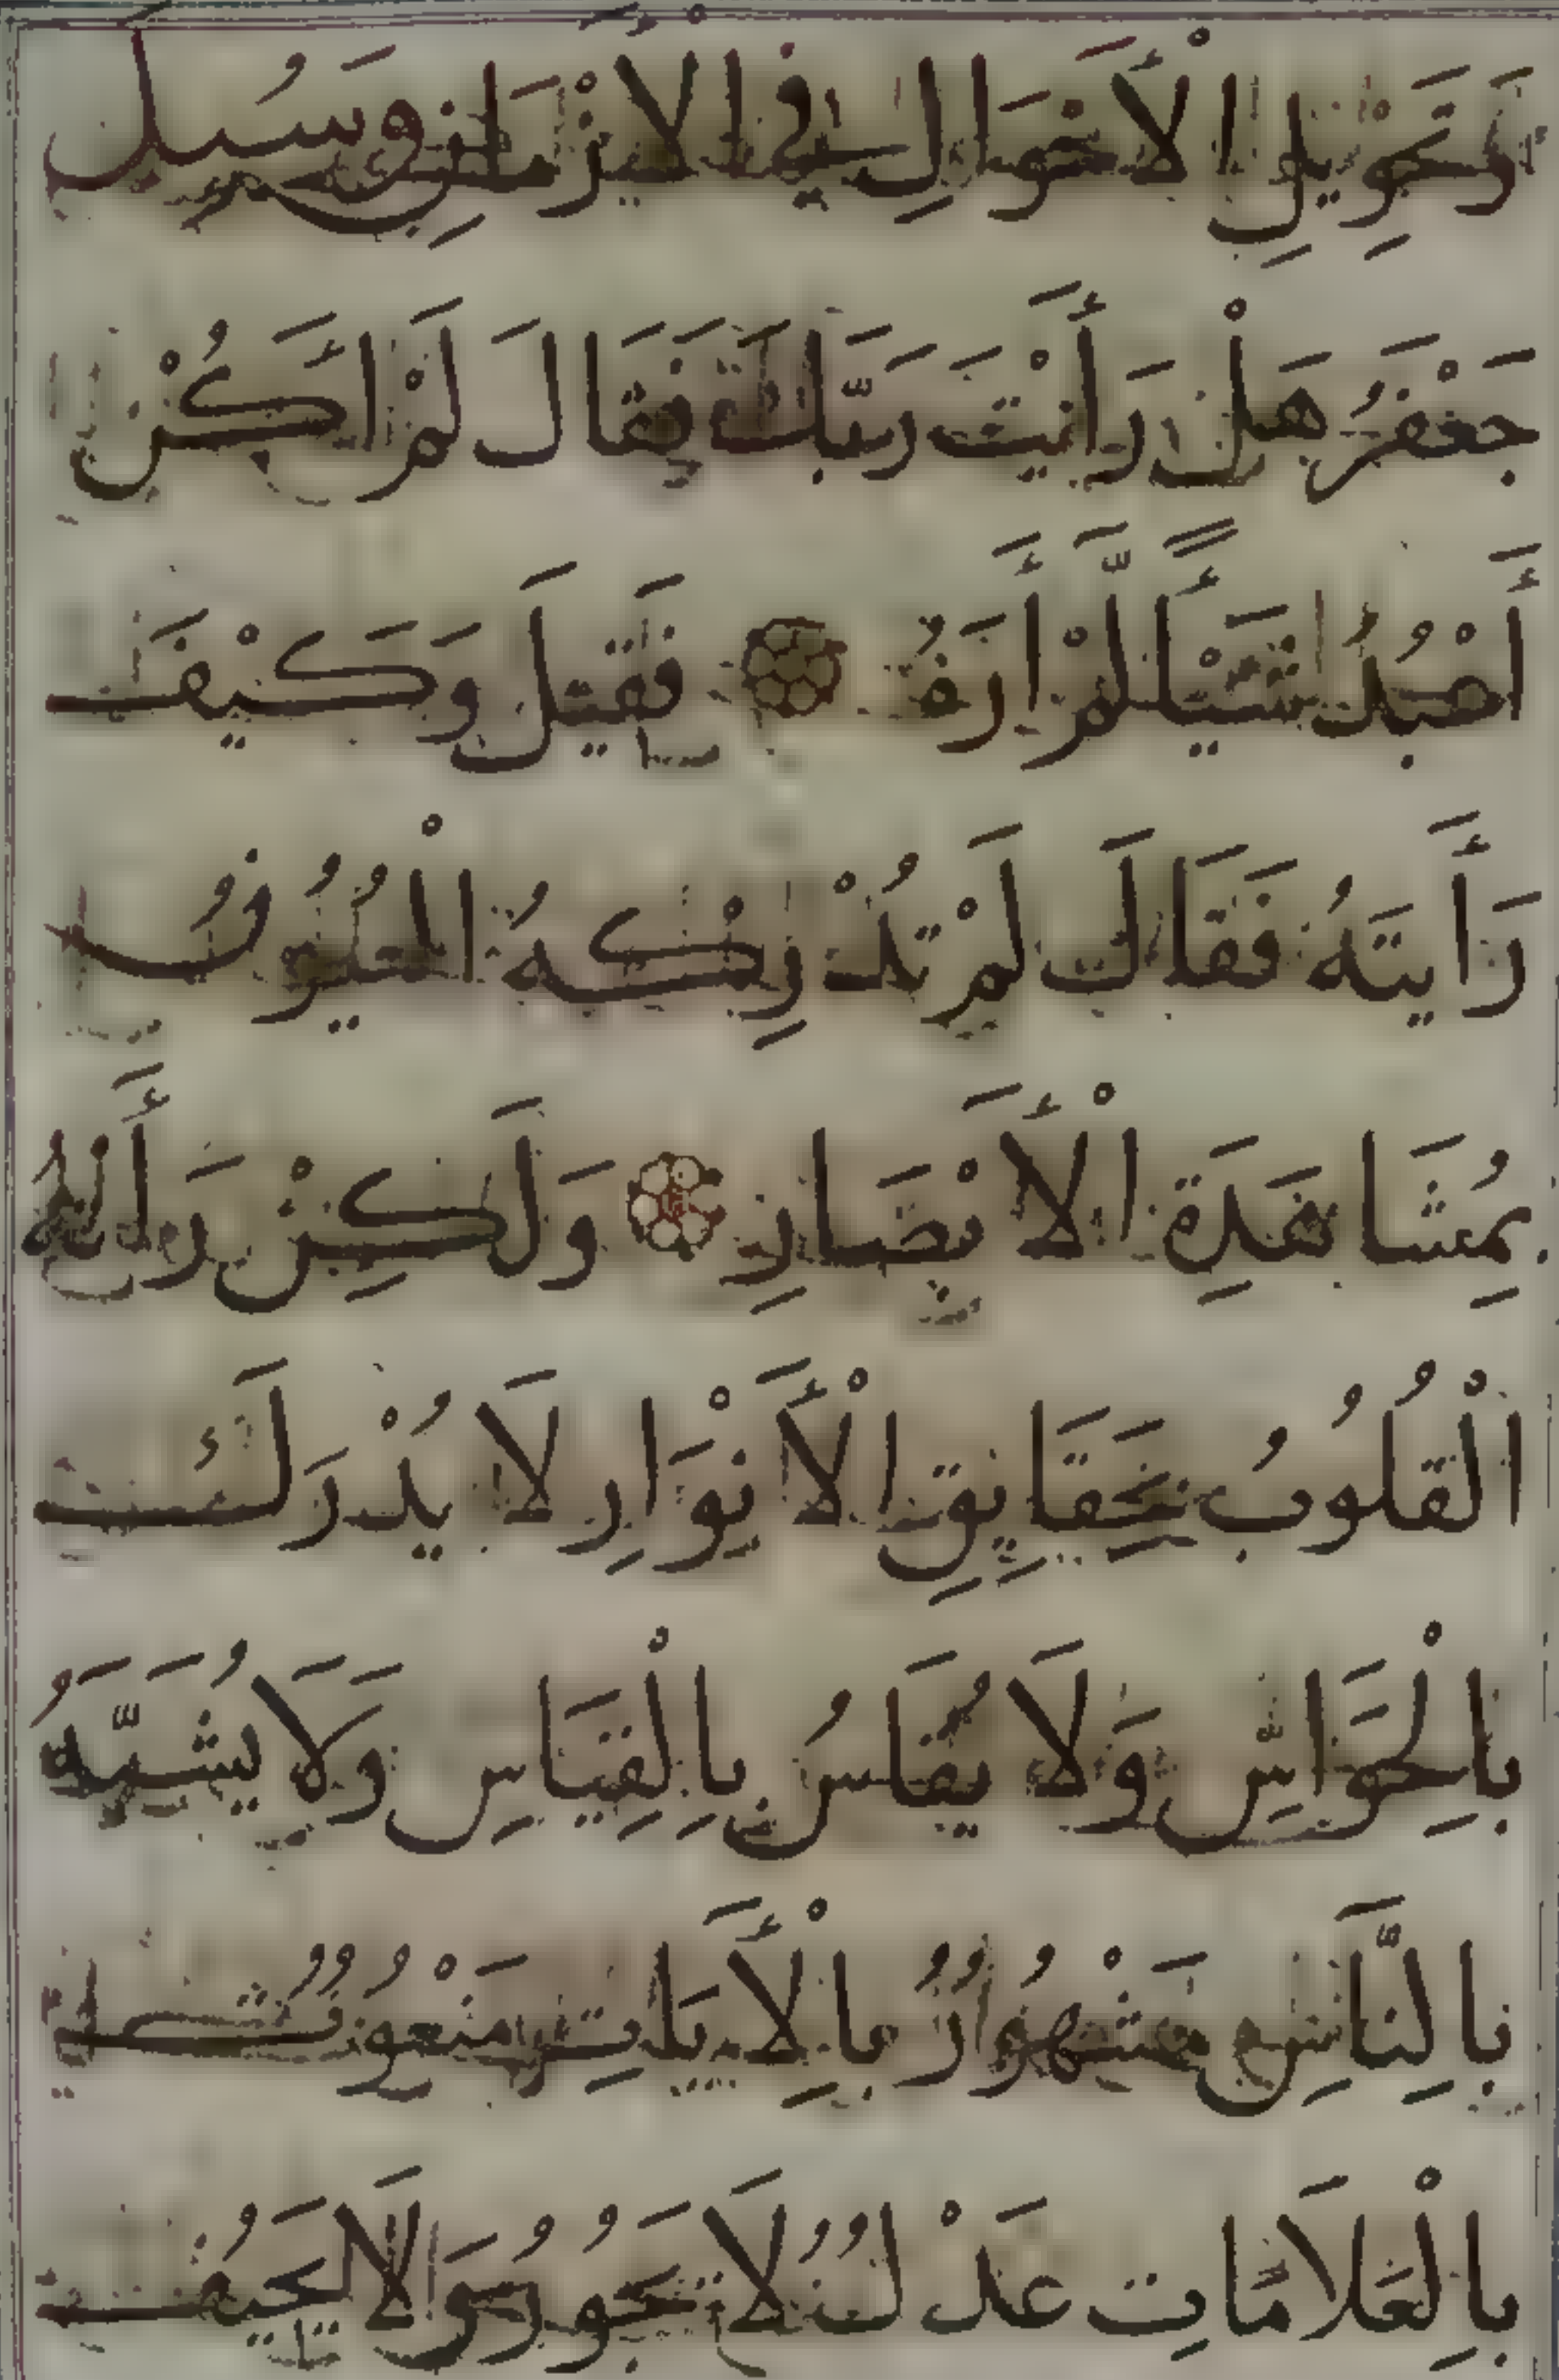 وَتَحْوِيْلِ الْأَحْوَالِ فِي الْأَزْمَانِ وَسُئِلَ
جَعْفَرُ هَلْ رَأَيْتَ رَبَّكَ فَقَالَ لَمْ أَكُنْ
أَعْبُدُ شَيْئًا لَّمْ أَرَهُ فَقِيْلَ وَكَيْفَ
رَأَيتَهُ فَقَالَ لَمْ تُدْرِكْهُ الْعُيُونُ
بِمُشَاهَدَةِ الْأَبْصَارِ وَلَكِنْ رَأَتْهُ
الْقُلُوبُ بِحَقَائِقِ الْأَنْوَارِ لَا يُدْرَكُ
بِالْحَوَاسِّ وَلَا يُقَاسُ بِالْقِيَاسِ وَلَا يُشَبَّهُ
بِالنَّاسِ مَشْهُورٌ بِالْأَيَاتِ مَنْعُوتٌ
بِالْعَلَامَاتِ عَدْلٌ لَا يَجُورُ وَلَا يَحِيفُ